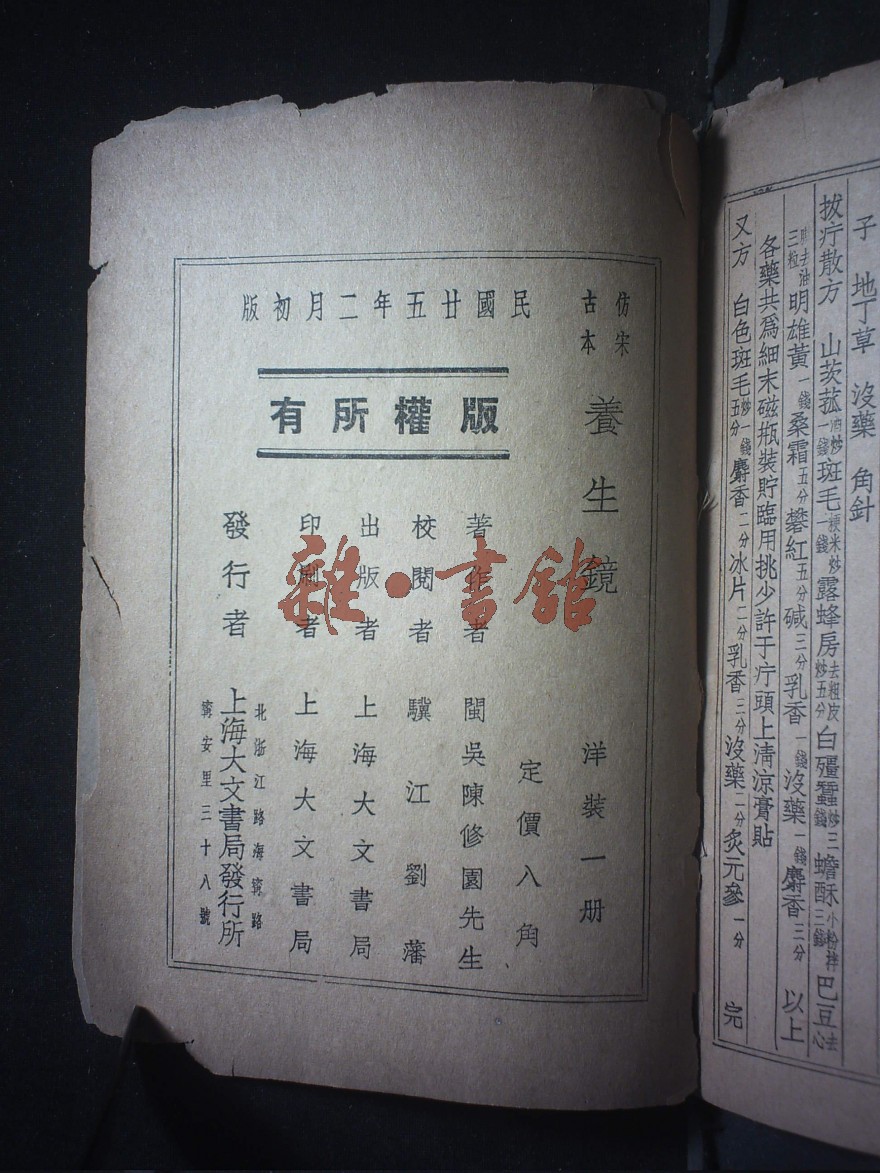 子　地丁草　沒藥　角針
拔疔散方　山茨菰酒炒一錢斑毛粳米炒一錢露蜂房去粗皮炒五分白殭蠶炒三錢蟾酥小粉拌三錢巴豆去心
去油三粒明雄黃一錢桑霜五分礬紅五分碱三分乳香一錢沒藥一錢麝香三分　以上
各藥共爲細末磁瓶裝貯臨用挑少許于疔頭上淸涼膏貼
又方　白色斑毛炒一錢五分麝香二分冰片二分乳香三分沒藥二分炙元參一分　完
民國廿五年二月初版
版權所有
仿宋古本　養生鏡　洋裝一册
定價入角
著作者　閩吳陳修園先生
校閱者　驥江劉藩
出版者　上海大文書局
印刷者　上海大文書局
發行者　上海大文書局發行所
北浙江路海甯路
甯安里三十八號
雜·書館